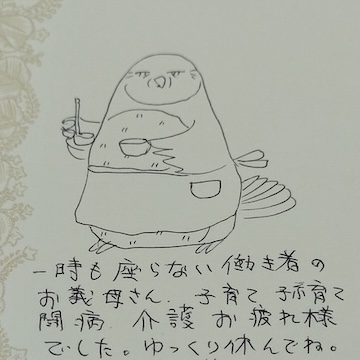 一時も座らない働き者の
お義母さん、子育て、孫育て
闘病、介護、お疲れ様
でした。ゆっくり休んでね。